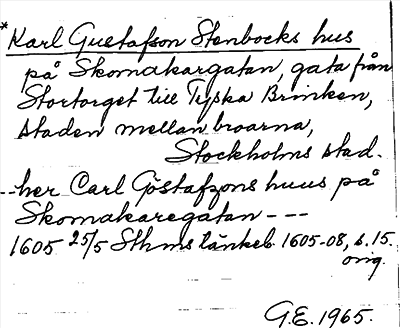 *Karl Gustafson Stenbocks hus
på Skomakargatan, gata från
Stortorget till Tyska Brinken,
staden mellan broarna,
Stockholms stad.
--her Carl Göstafzons huus på
Skomakaregatan ---
1605 25/5 Sthms tänkeb. 1605-08, s. 15.
orig.
G.E. 1965.